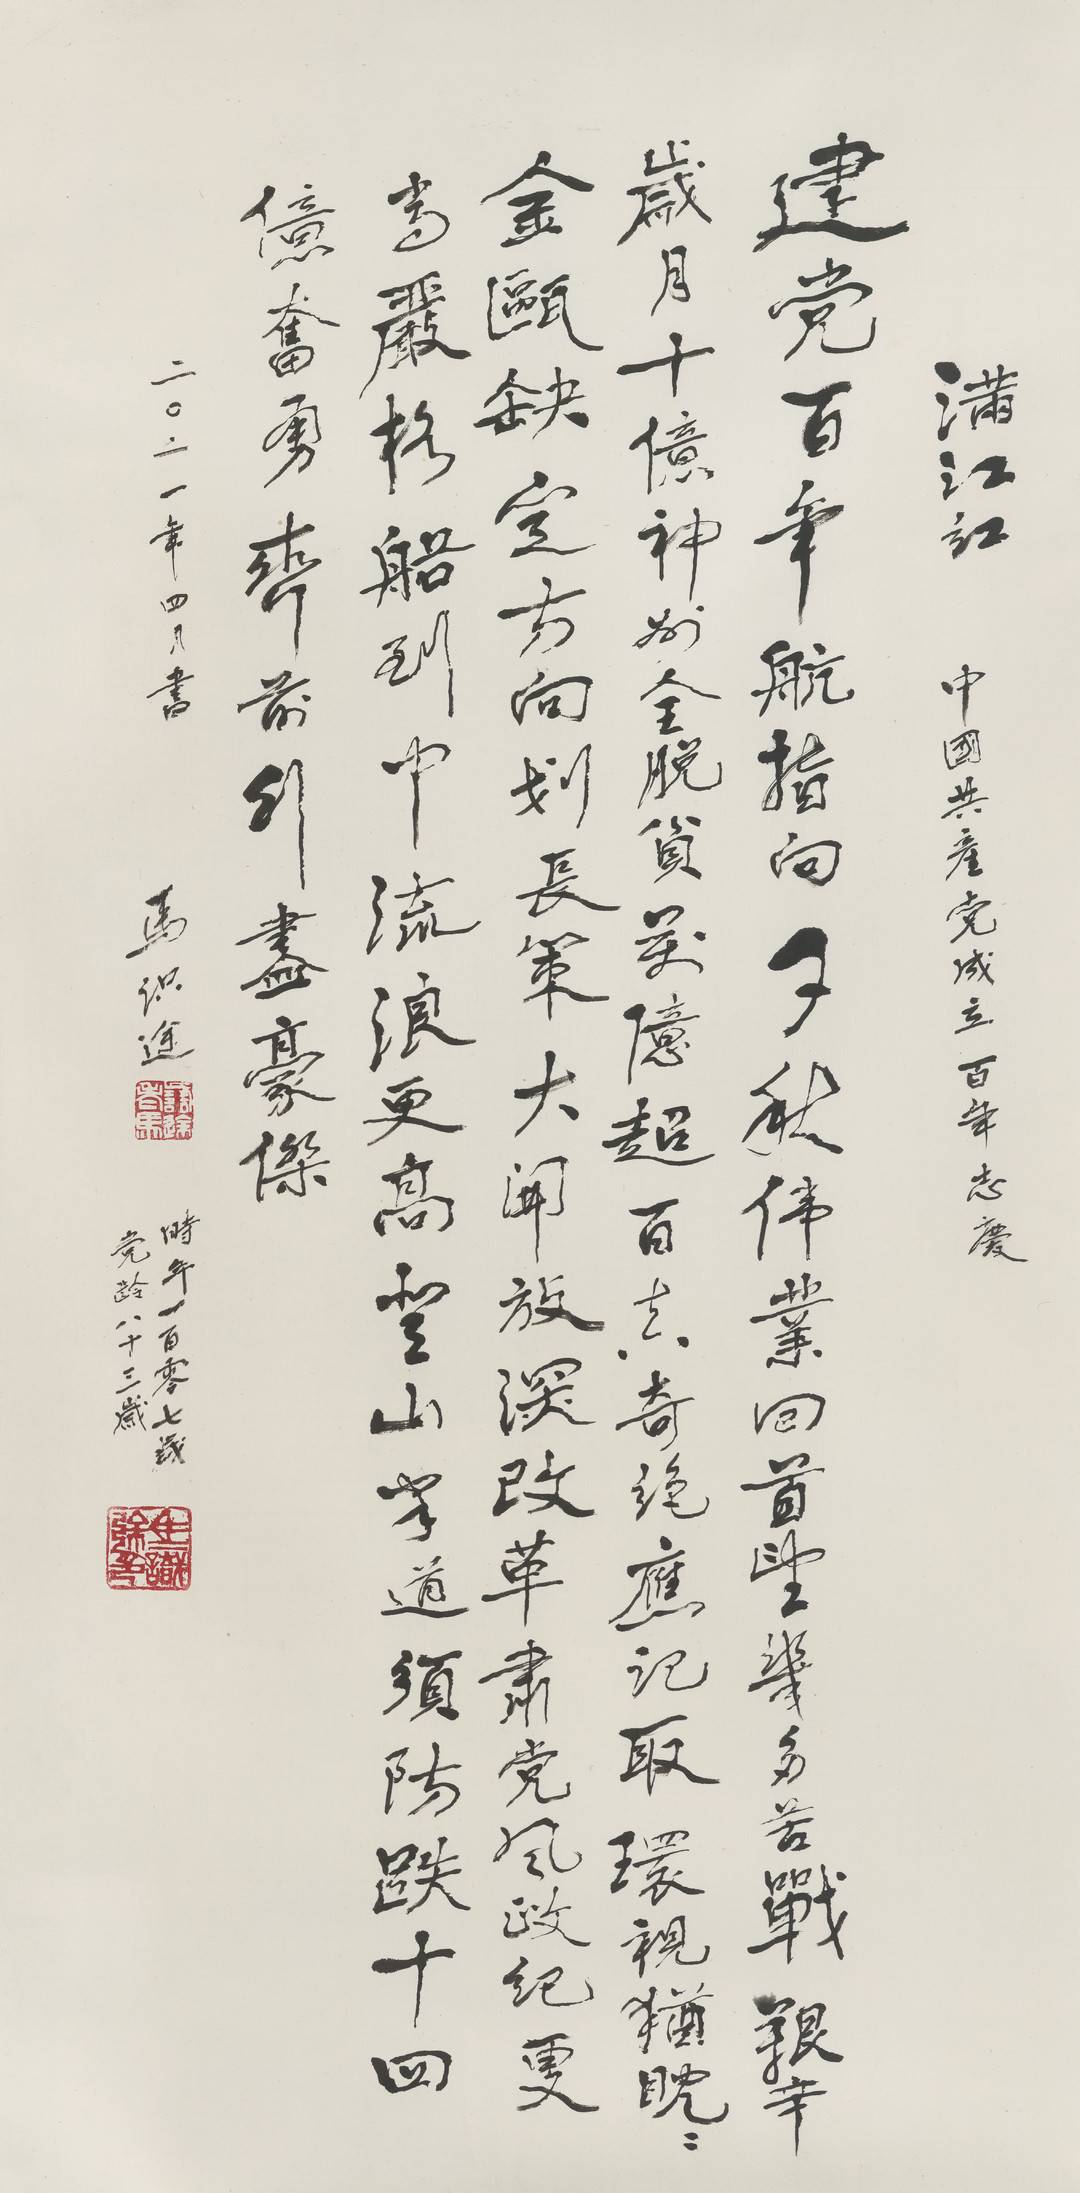 滿江红 中國共產党成立百年志慶
建党百年航指向千秋偉業回首望幾多苦戰艱辛
歲月十億神州全脱貧萬億超百真奇絶應記取環視猶眈〻
金甌缺定方向划長策大開放深改革肅党風政紀更
當嚴格船到中流浪更高登山半道須防跌十四
億奮勇齊前列盡豪傑
二〇二一年四月書 馬识途
時年一百零七歲
党龄八十三歲